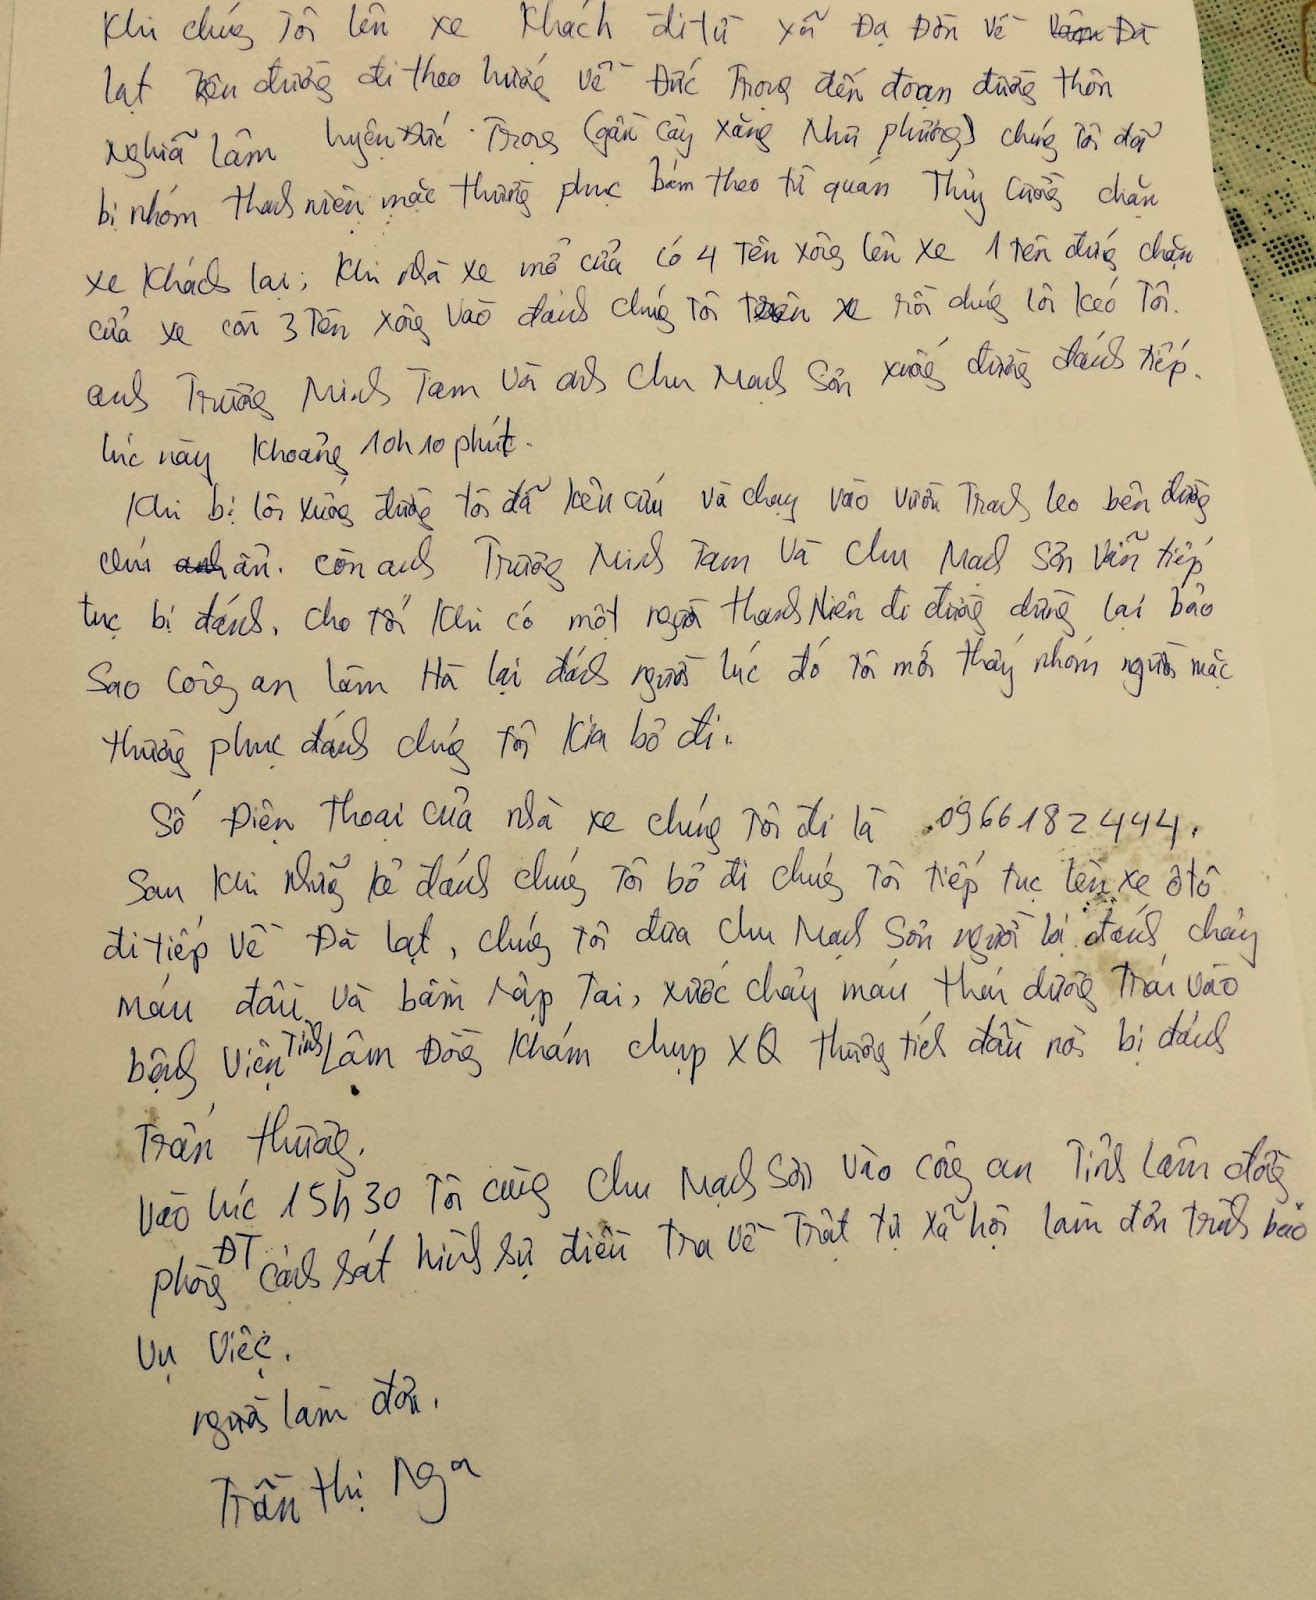 Khi chúng Tôi lên xe Khách đi từ xã Đạ Đờn về Đà
lạt Trên đường đi theo hướng về Đức Trọng đến đoạn đường thôn
Nghĩa lâm huyện Đức Trọng (gần cây xăng Như phương) chúng Tôi đã
bị nhóm thanh niên mặc thường phục bám theo từ quán Thủy Cường chặn
xe Khách lại; Khi nhà xe mở cửa có 4 Tên xông lên xe 1 tên đứng chặn
cửa xe còn 3 Tên xông vào đánh chúng Tôi trên xe rồi chúng lôi kéo Tôi.
anh Trương Minh Tam và anh Chu Mạnh Sơn xuống đường đánh tiếp.
lúc này Khoảng 10h10 phút.
Khi bị lôi xuống đường tôi đã kêu cứu và chạy vào vườn Tranh leo bên đường
chú ẩn. còn anh Trương Minh Tam và Chu Mạnh Sơn vẫn tiếp
tục bị đánh. cho tới khi có một người thanh Niên đi đường dừng lại bảo
Sao Công an lâm Hà lại đánh người lúc đó tôi mới thấy nhóm người mặc
thường phục đánh chúng tôi kia bỏ đi.
Số Điện Thoại của nhà xe chúng Tôi đi là 0966182444.
Sau khi những kẻ đánh chúng Tôi bỏ đi chúng Tôi tiếp tục lên xe ôtô
đi tiếp về Đà lạt, chúng tôi đưa Chu Mạnh Sơn người bị đánh chảy
máu đầu và bầm rập Tai, xước chảy máu thái dương Trái vào
bệnh viện Tỉnh Lâm Đồng Khám chụp XQ thương tích đầu nơi bị đánh
Trấn thương.
Vào lúc 15h30 Tôi cùng Chu Mạnh Sơn vào công an Tỉnh Lâm đồng
phòng ĐT cảnh sát hình sự điều tra về Trật tự xã hội làm đơn trình báo
Vụ Việc.
người làm đơn.
Trần Thị Nga